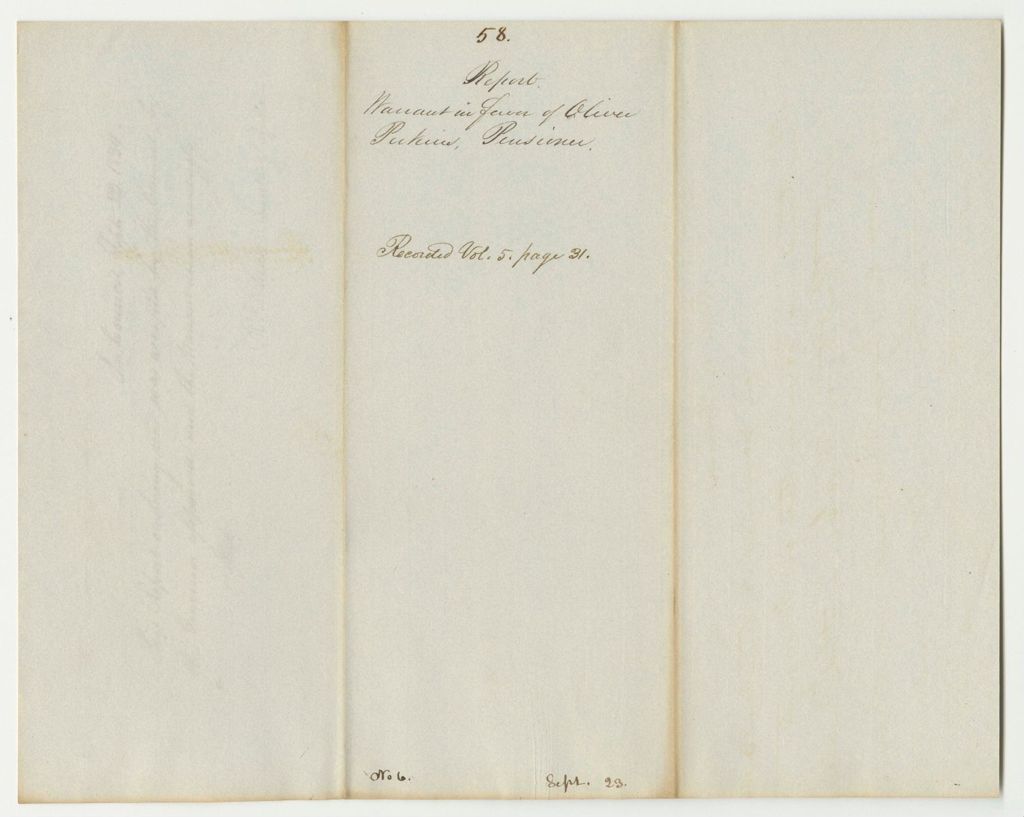 58.
Report.
Warrant in favor of Oliver
Perkins, Pensioner.
Recorded Vol. 5. page 31.
No 6. Sept. 23.